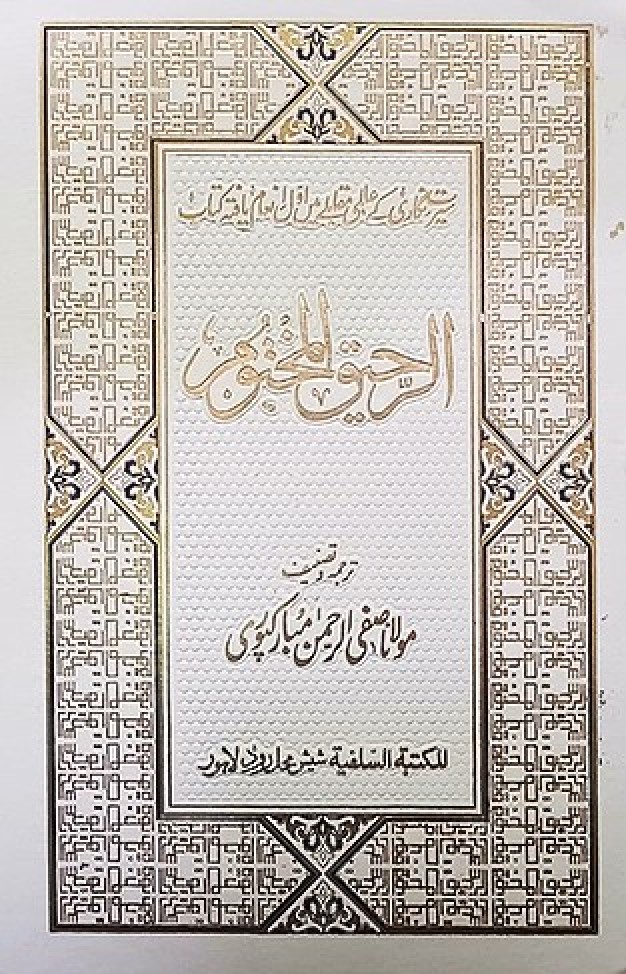 سیرت نگاری کے عالمی مقابلے میں اوّل انعام یافتہ کتاب
الرحیق المختوم
ترجمہ و تصنیف
مولانا صفی الرحمٰن مُبارکپوری
المکتبة السّلفیة شیش محل روڈ لاہور